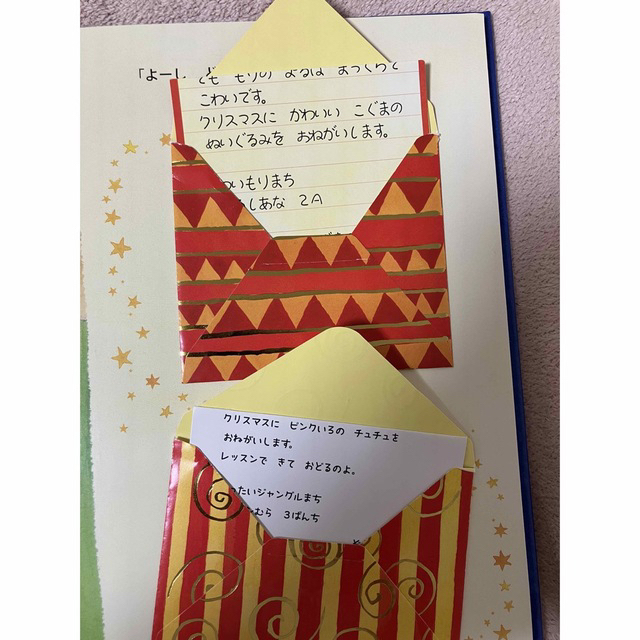 「よーし
とも もりの よるは まっくらで
こわいです。
クリスマスに かわいい こぐまの
ぬいぐるみを おねがいします。
いもりまち
しあな 2A
クリスマスに ピンクいろの チュチュを
おねがいします。
レッスンで きて おどるのよ。
ったいジャングルまち
むら 3ばんち